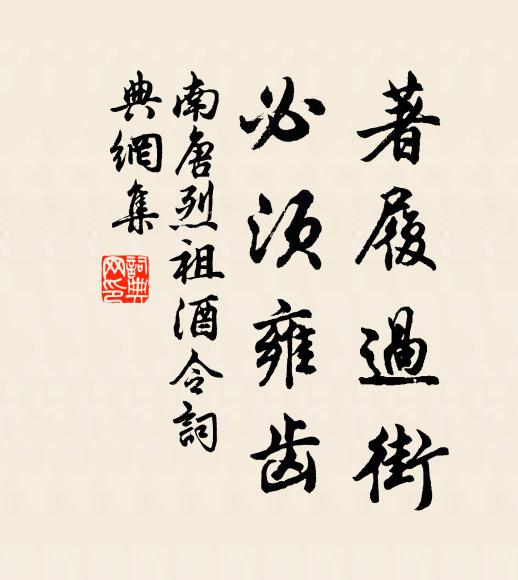 著履過街
必須雍齿
南唐烈祖酒令詞
典網集
詞典網印